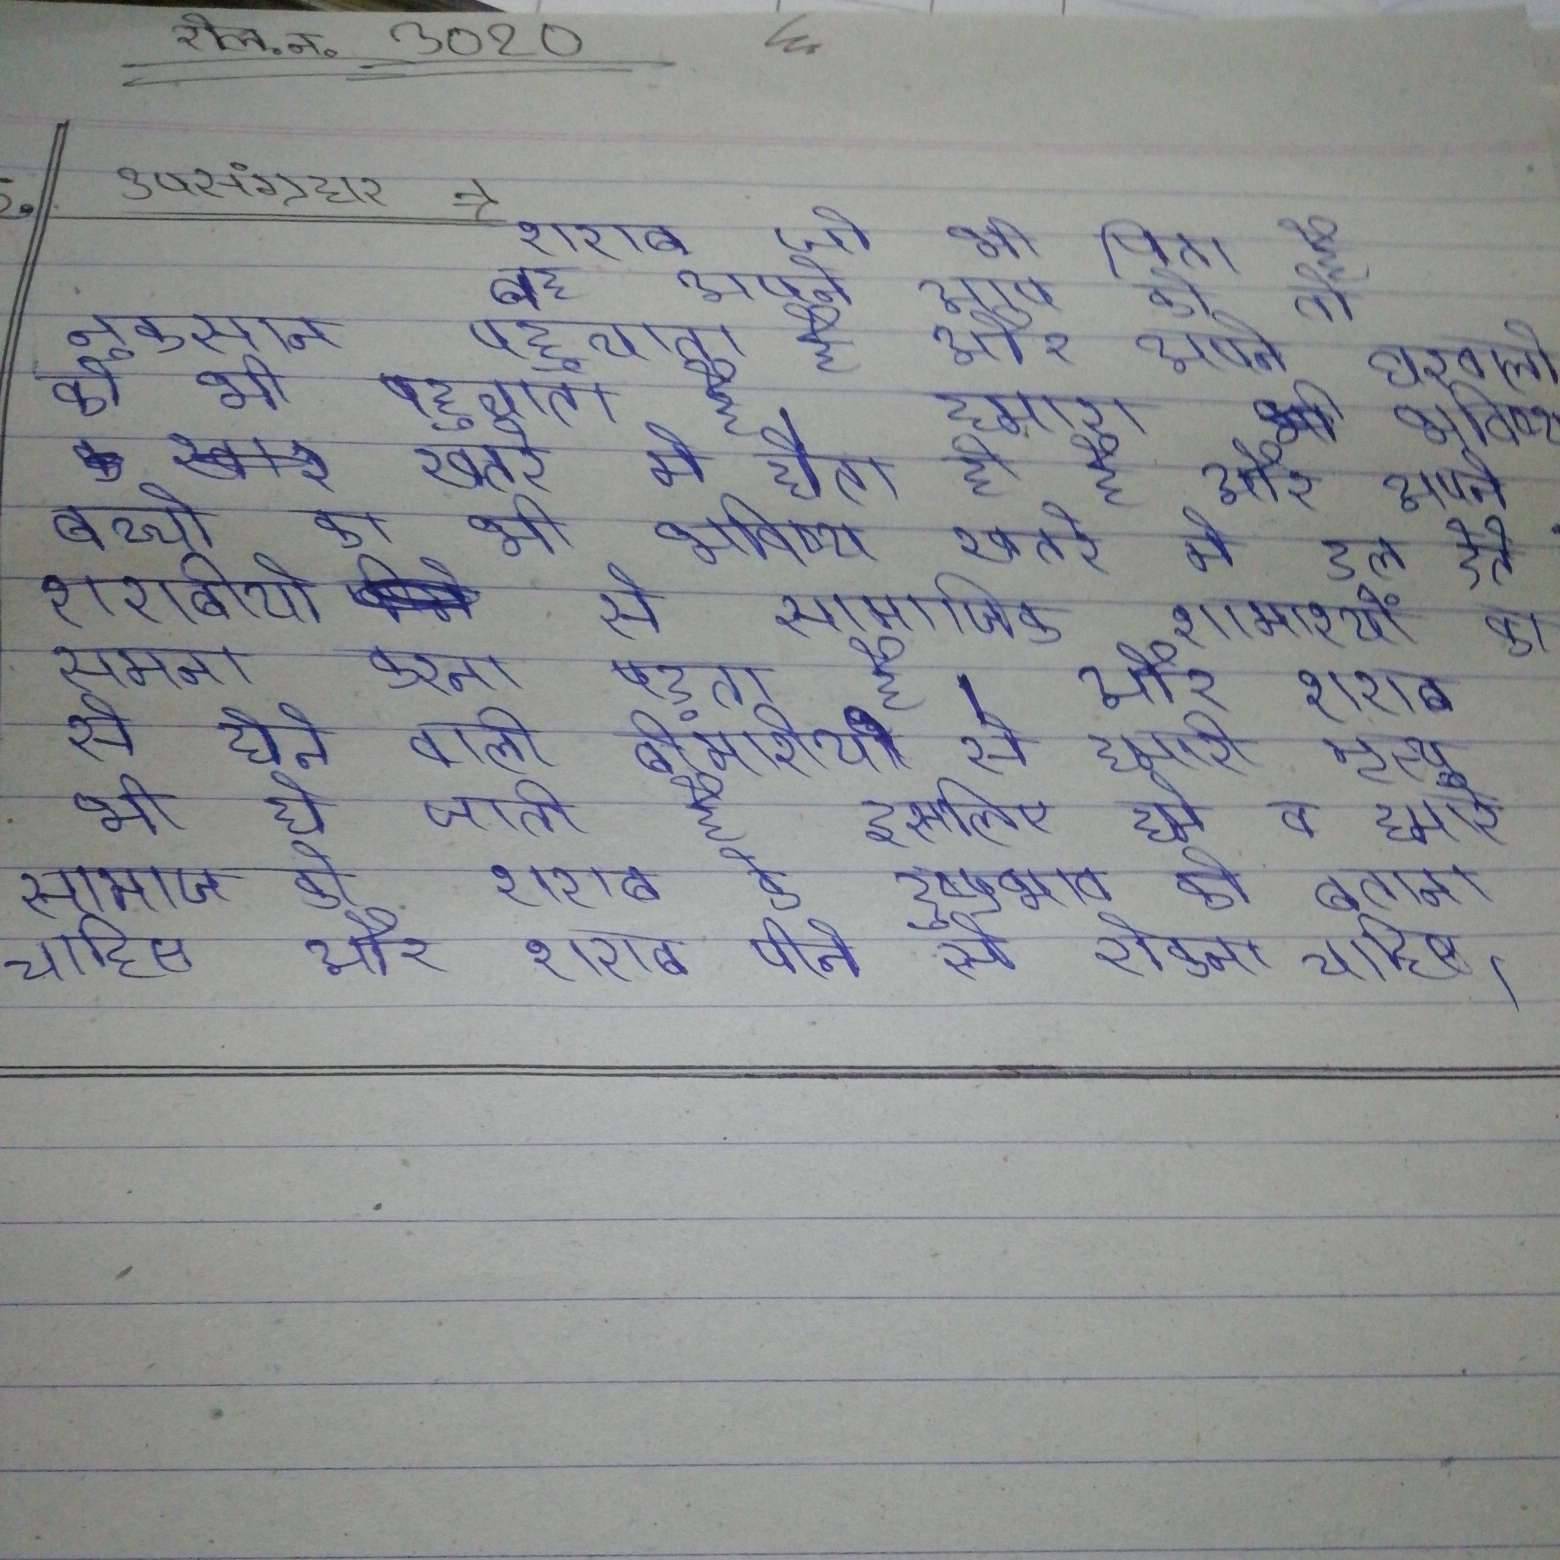 रोल.न. 3020
5. उपसंग्रहार →
शराब जो भी पिता है
बह अपने आप को तो
नुकसान पहुचाता है और अपने घरवालो
को भी पहुचाता है। हमारा भी भविष्य
खतरे मे होता है है और अपने
बच्चो का भी भविष्य खतरे मे डल देते
शराबीयो से सामाजिक शामाश्यों का
समना करना पड़ता है। और शराब
से होने वाली बीमारीयो से हमारी मृत्यु
भी हो जाती है इसलिए हमे व हमारे
सामाज को शराब के दुष्प्रभाव को बताना
चाहिए और शराब पीने से रोकना चाहिए।